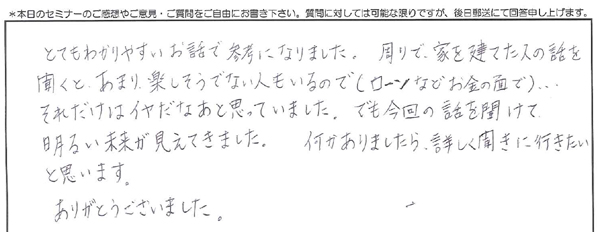 *本日のセミナーのご感想やご意見・ご質問をご自由にお書き下さい。質問に対しては可能な限りですが、後日郵送にて回答申し上げます。
とてもわかりやすいお話で参考になりました。 周りで、家を建てた人の話を
聞くと、あまり、楽しそうでない人もいるので(ローンなどお金の面で)…
それだけはイヤだなあと思っていました。でも今回の話を聞けて
明るい未来が見えてきました。 何かありましたら、詳しく聞きに行きたい
と思います。
ありがとうございました。